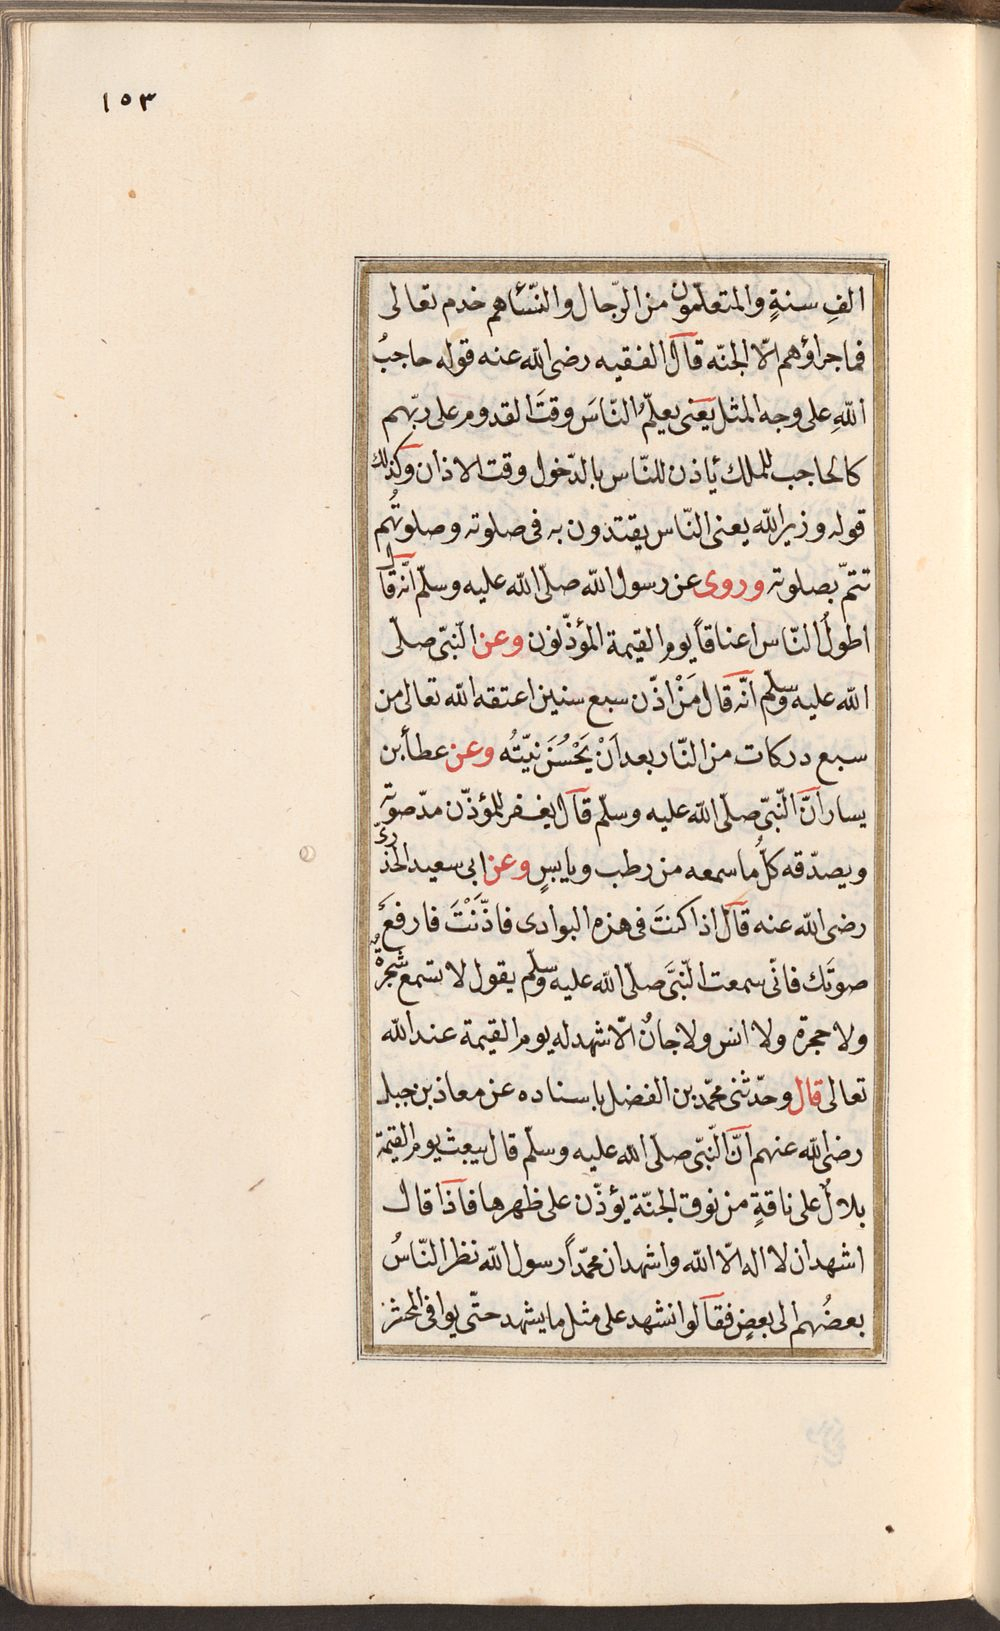 ١٥٣
الفِ سنةٍ والمتعلّمون من الرّجال والنّسٔا هم خدم تعالى
فما جزاؤهم الّا الجنّه قال الفقيه رضى اللّه عنه قوله حاجبُ
اللّهِ على وجه المثل يعنى يعلّمُ النّاسَ وقتَ القدوم على ربّهم
كالحاجب للملك يأذن للنّاس بالدّخول وقت الاذان وكذلك
قوله وزير اللّه يعنى النّاس يقتدون به فى صلوته وصلوتُهم
تتمّ بصلوته وروى عن رسول اللّه صلّى اللّه عليه وسلّم انّه قال
اطولُ النّاس اعناقاً يوم القيمة المؤذّنون وعن النّبىّ صلّى
اللّه عليه وسلّم انّه قال مَنْ اذّن سبع سنين اعتقه اللّه تعالى من
سبع دركات من النّار بعد اَنْ يَحْسُنَ نيّتُه وعن عطأ بن
يسار انّ النّبىّ صلّى اللّه عليه وسلّم قال يغفر للمؤذّن مدّ صوته
ويصدّقه كلُّ ما سمعه من رطب ويابسٍ وعن ابى سعيد الخدرىّ
رضى اللّه عنه قال اذا كنتَ فى هذه البوادى فاذّنْتَ فارفعَ
صوتَك فانّى سمعت النّبىَّ صلّى اللّه عليه وسلّم يقول لا تسمع شجرةٌ
ولا حجرة ولا انس ولا جانٌ الّا شهد له يوم القيمة عند اللّه
تعالى قال وحدّثنى محمّد بن الفضل باسناده عن معاذ بن جبل
رضى اللّه عنهم انّ النّبىّ صلّى اللّه عليه وسلّم قال يبعث يوم القيمة
بلالٌ على ناقةٍ من نوق الجنّة يؤذّن على ظهرها فاذا قال
اشهد ان لا اله الّا اللّه واشهد ان محمّداً رسول اللّه نظر النّاسُ
بعضُهم الى بعضٍ فقالوا نشهد على مثل ما يشهد حتّى يوافى المحشر